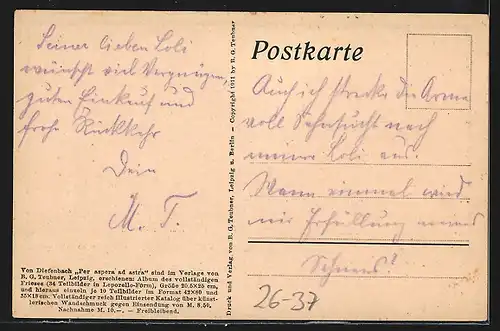 Seiner lieben Loli
wünscht viel Vergnügen,
guten Einkauf und
frohe Rückkehr
Dein
M. T.
Von Diefenbach „Per aspera ad astra“ sind im Verlage von
B. G. Teubner, Leipzig, erschienen: Album des vollständigen
Frieses (34 Teilbilder in Leporello-Form), Größe 20.5X25 cm,
und hieraus einzeln je 10 Teilbilder im Format 42X80 und
35X18 cm. Vollständiger reich illustrierter Katalog über künst-
lerischen Wandschmuck gegen Einsendung von M. 8.50,
Nachnahme M. 10,—. — Freibleibend.
Druck und Verlag von B. G. Teubner, Leipzig u. Berlin — Copyright 1911 by B. G. Teubner
Postkarte
Auch ich strecke die Arme
voll Sehnsucht nach
meiner Loli aus.
Wann einmal wird
mir Erfüllung meines
Sehnens?
26-37